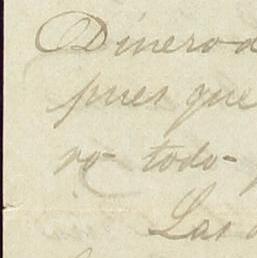 Dinero d
pues que
ro todo-
Las